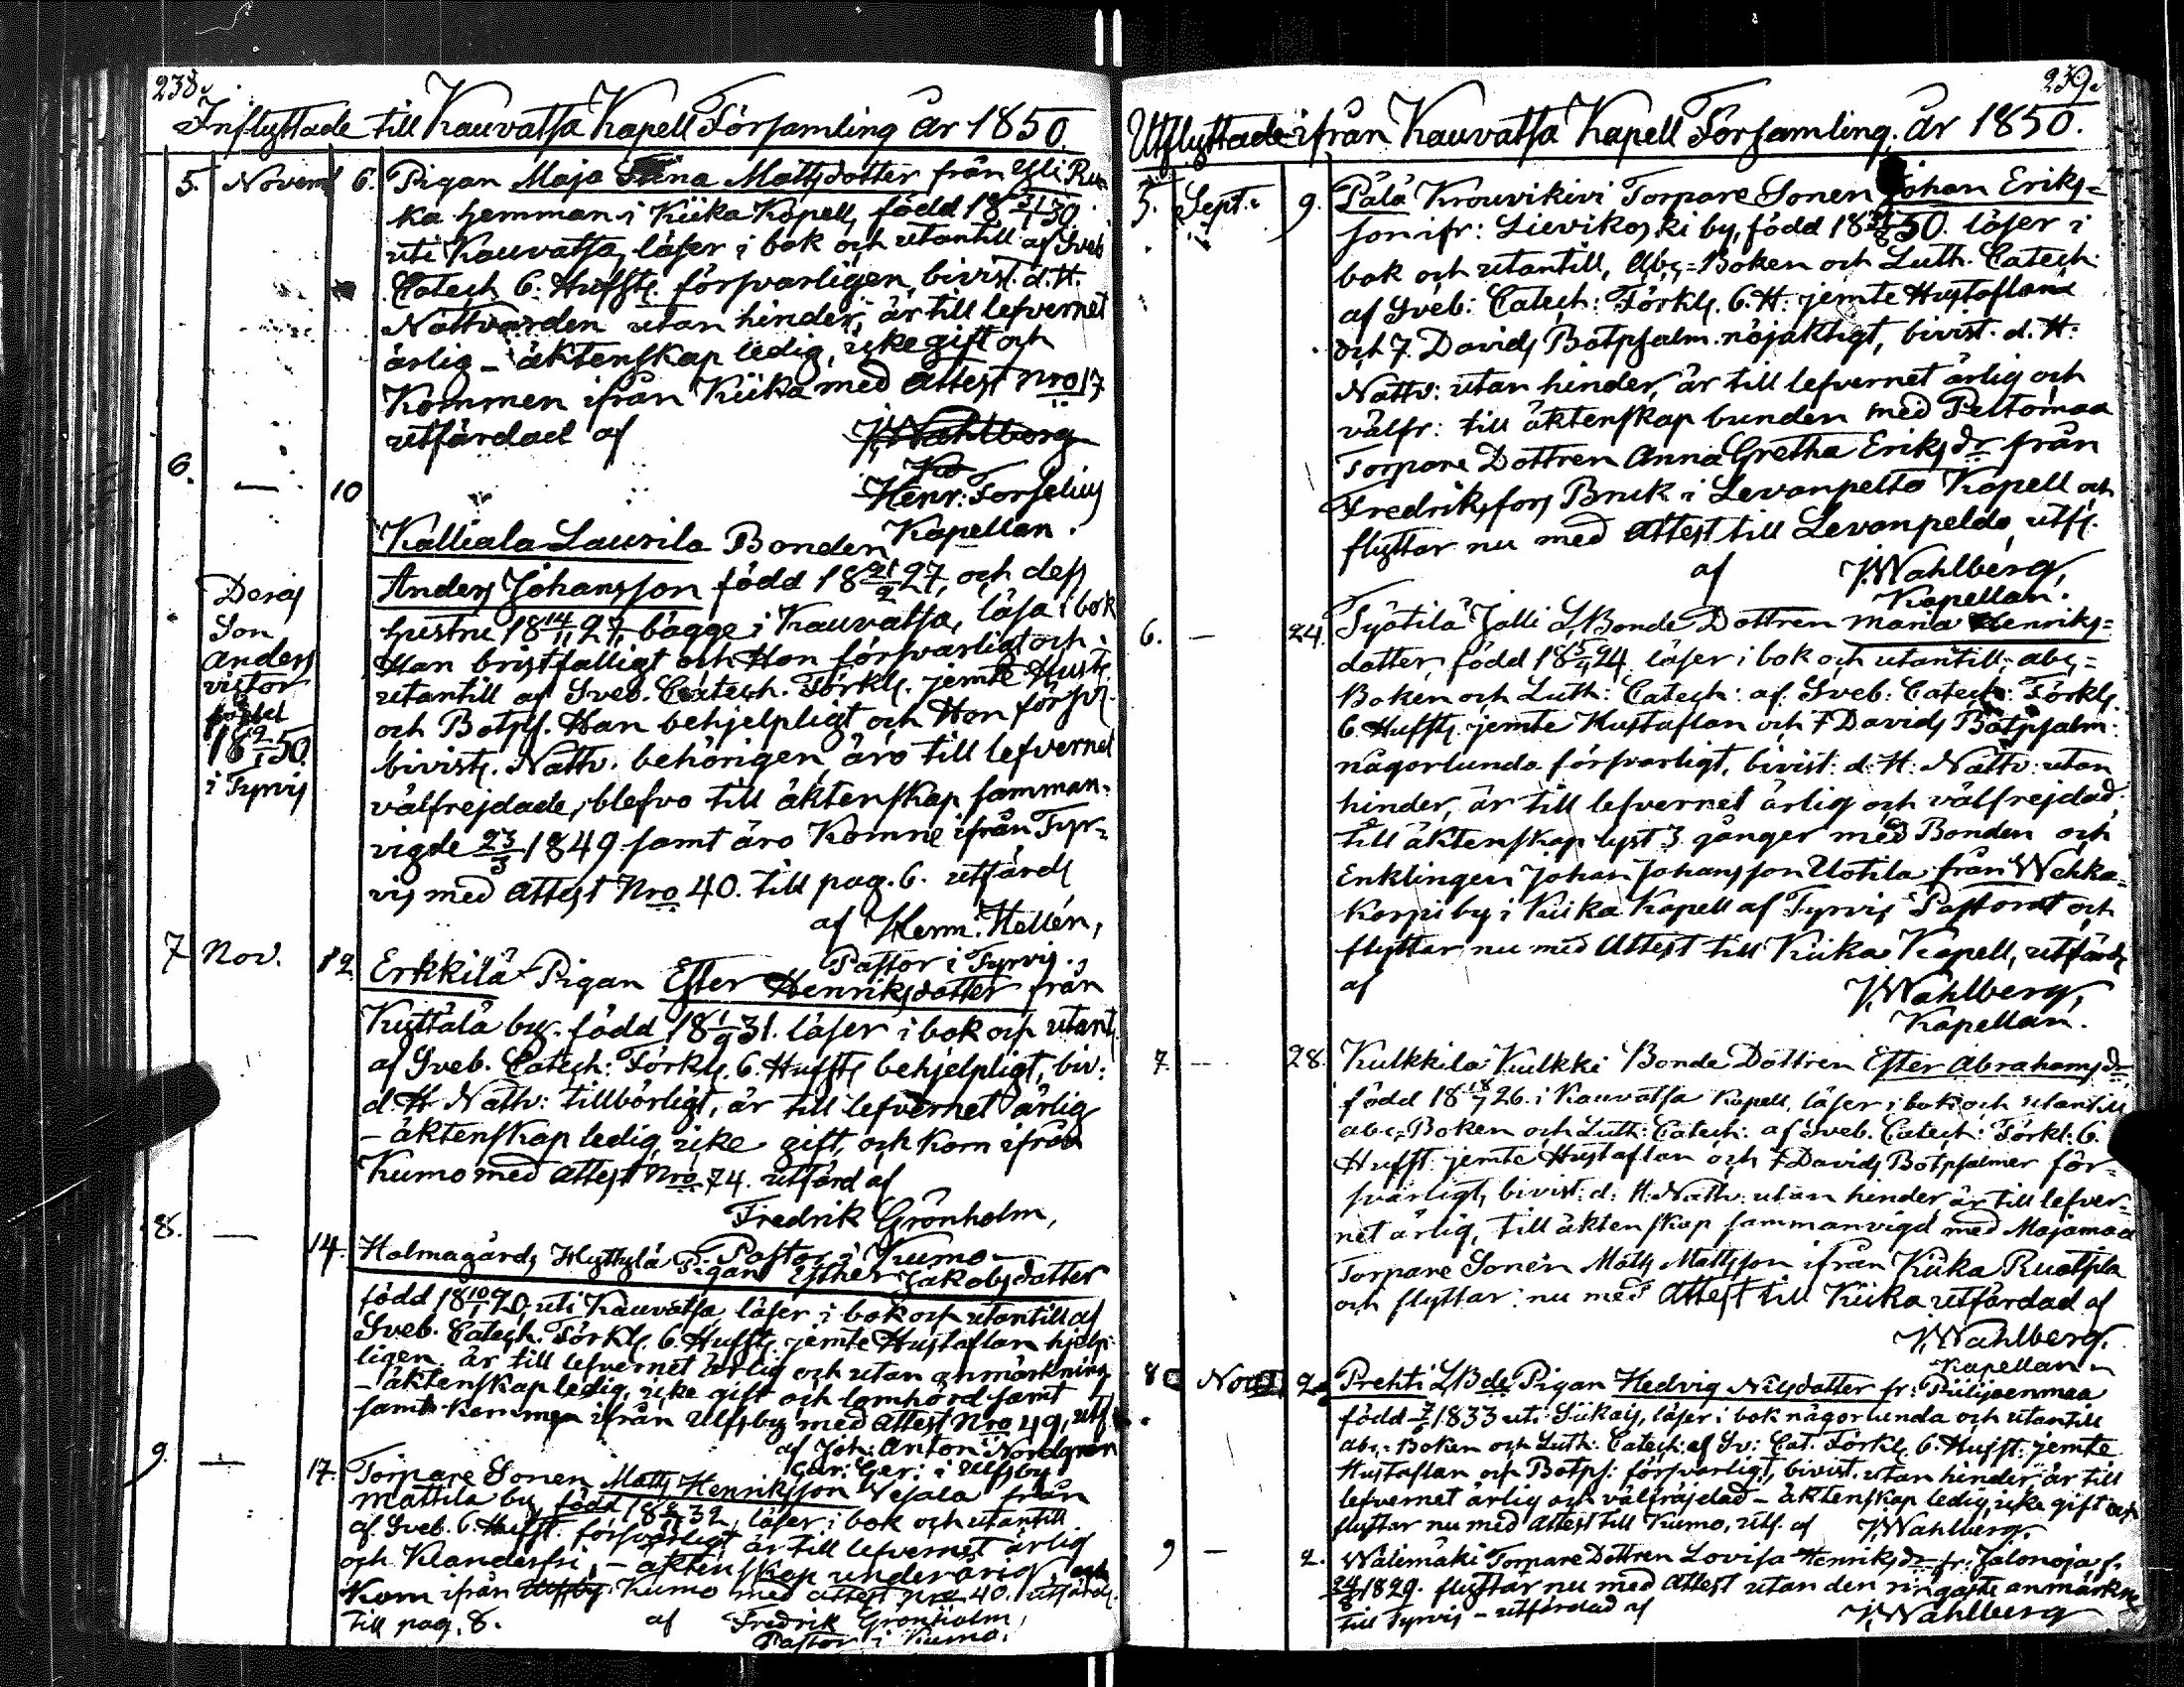 238.
Inflyttade till Kauvatsa Kapell Församling år 1850.
5. Novem 6. Pigan Maja Stina Mattsdotter från Ylli Ru-
ka hemman i Kiika Kapell, född 18 21/1 30.
uti Kauvatsa, läser i bok och utantill af Sveb
Catech 6. Huffst. försvarligen, bivist. d. H.
Nattvarden utan hinder, är till lefvernet
ärlig – äktenskap ledig, icke gift och
Kommen ifrån Kiika med Attest Nro 17
utfärdad af J. Wahlberg
Henr: Forselius
Kapellan.
6. — 10 Kalliala Laurila Bonden
Anders Johansson född 18 21/2 27, och dess
hustru 18 14/11 27, bägge i Kauvatsa, läsa i bok
Han bristfälligt och Hon försvarligt och
utantill af Sveb. Catech. Förkl. jemte Hust.
och Botps. Han behjelpligt och Hon försv.
bivist. Nattv. behörigen äro till lefvernet
välfrejdade, blefvo till äktenskap samman-
vigde 23/3 1849 samt äro Komne ifrån Tyr-
vis med Attest Nro 40. till pag. 6. utfärd
af Herm: Hellén,
Pastor i Tyrvis.
Deras
Son
Anders
Victor
född
18 2/1 50.
i Tyrvis
7 Nov. 12. Erkkilä Pigan Ester Henriksdotter från
Kyttälä by. född 18 1/9 31. läser i bok och utant.
af Sveb. Catech: Förkl. 6. Huffst behjelpligt, biv:
d. H Nattv: tillbörligt, är till lefvernet ärlig
– äktenskap ledig, icke gift, och Kom ifrån
Kumo med Attest Nro 74. utfärd af
Fredrik Grönholm,
Pastor i Kumo –
8. — 14. Holmagårds Hyttylä Pigan Esther Jakobsdotter
född 18 10/1 20, uti Kauvatsa, läser i bok och utantill af
Sveb. Catech. Förkl. 6. Huffst. jemte Hustaflan hjelp-
ligen, är till lefvernet ärlig och utan anmärkning
– äktenskap ledig, icke gift och lomhörd samt
samt kommen ifrån Ulfsby med Attest Nro 49, utf
af Joh: Anton Nordgren
i Ulfsby
9. — 17. Torpare Sonen Matts Henriksson Vesala från
Mattila by, född 18 32, läser i bok och utantill
af Sveb. 6. Huffst. försvarligt är till lefvernet ärlig
och Klanderfri, – äktenskap underårig, och
Kom ifrån Ulfsby Kumo med attest Nro 40. utfärd.
till pag. 8. af Fredrik Grönholm,
Pastor i Kumo.
239.
Utflyttade ifrån Kauvatsa Kapell Församling. År 1850.
5. Sept. 9. Pälä Krouvikivi Torpare Sonen Johan Eriks-
son ifr: Lievikoski by, född 18 50. läser i
bok och utantill, Abc-Boken och Luth. Catech.
af Sveb: Catech: Förkl. 6. H. jemte Hustaflan
och 7. Davids Botpsalm. nöjaktigt, bivist. d. H.
Nattv: utan hinder, är till lefvernet ärlig och
välfr: till äktenskap bunden med Peltomaa
Torpare Dottren Anna Gretha Eriksdr från
Fredriksfors Bruk i Levanpelto Kapell och
flyttar nu med Attest till Levanpeldo, utf.
af J. Wahlberg,
Kapellan.
6. — 24. Työtilä Jalli L, Bonde Dottren Maria Henriks-
dotter, född 18 24 läser i bok och utantill, abc-
Boken och Luth: Catech: af Sveb: Catech: Förkl.
6. Huffst. jemte Hustaflan och 7 Davids Botpsalm:
någorlunda försvarligt, bivist: d. H: Nattv: utan
hinder, är till lefvernet ärlig och välfrejdad,
till äktenskap lyst 3 gånger med Bonden och
Enklingen Johan Johansson Uotila från Wehka-
Korpi by i Kiika Kapell af Tyrvis Pastorat och
flyttar nu med Attest till Kiika Kapell, utfärd
af J. Wahlberg,
Kapellan.
7. — 28. Kulkkila Kulkki Bonde Dottren Ester Abrahamsdr
född 18 18/7 26. i Kauvatsa Kapell, läser i bok och utantill
abc-Boken och Luth: Catech: af Sveb. Catech: Förkl: 6.
Huffst: jemte Hustaflan och 7 Davids Botpsalmer för-
svarligt, bivist: d: H: Nattv: utan hinder, är till lefver-
net ärlig, till äktenskap sammanvigd med Majamaa
Torpare Sonen Matts Mattsson ifrån Kiika Ruotsila
och flyttar nu med Attest till Kiika utfärdad af
J. Wahlberg.
Kapellan
8 Nov 2 Prehti L Bde Pigan Hedvig Nilsdotter fr: Piilijoenmaa
född 7/6 1833 uti Siikais, läser i bok någorlunda och utantill
abc-Boken och Luth: Catech: af Sv: Cat. Förkl 6. Huffst: jemte
Hustaflan och Botps: försvarligt, bivist. utan hinder är till
lefvernet ärlig och välfräjdad – äktenskap ledig, icke gift och
flyttar nu med Attest till Kumo, utf. af J. Wahlberg.
9 — 2. Wälimäki Torpare Dottren Lovisa Henriksdr fr: Jalonoja f.
24/8 1829. flyttar nu med Attest utan den ringaste anmärkn
till Tyrvis – utfärdad af J. Wahlberg